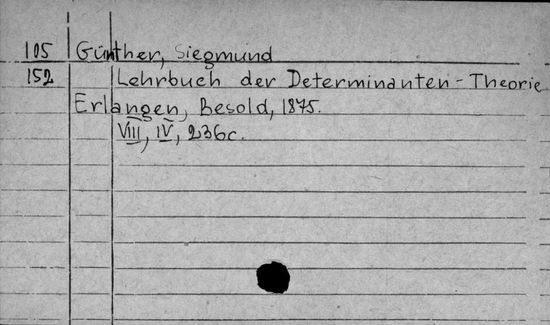 105 Günther, Siegmund
152 Lehrbuch der Determinanten-Theorie
Erlangen, Besold, 1875.
VIII, IV, 236c.